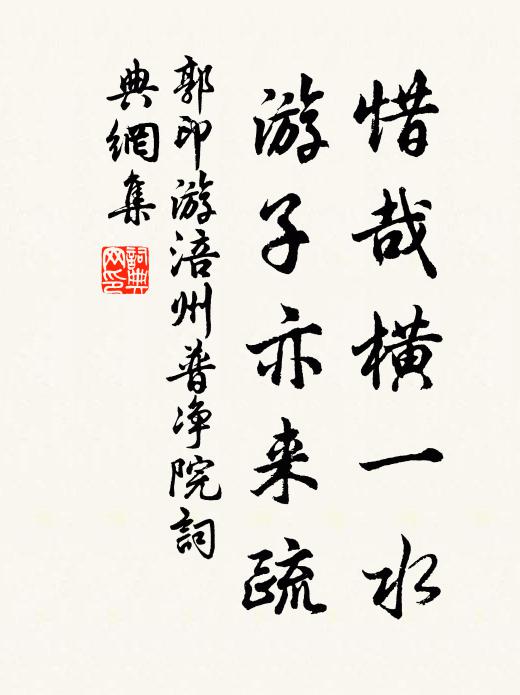 惜哉横一水
游子亦来疏
郭印游涪州普净院詞
典網集
詞典網印